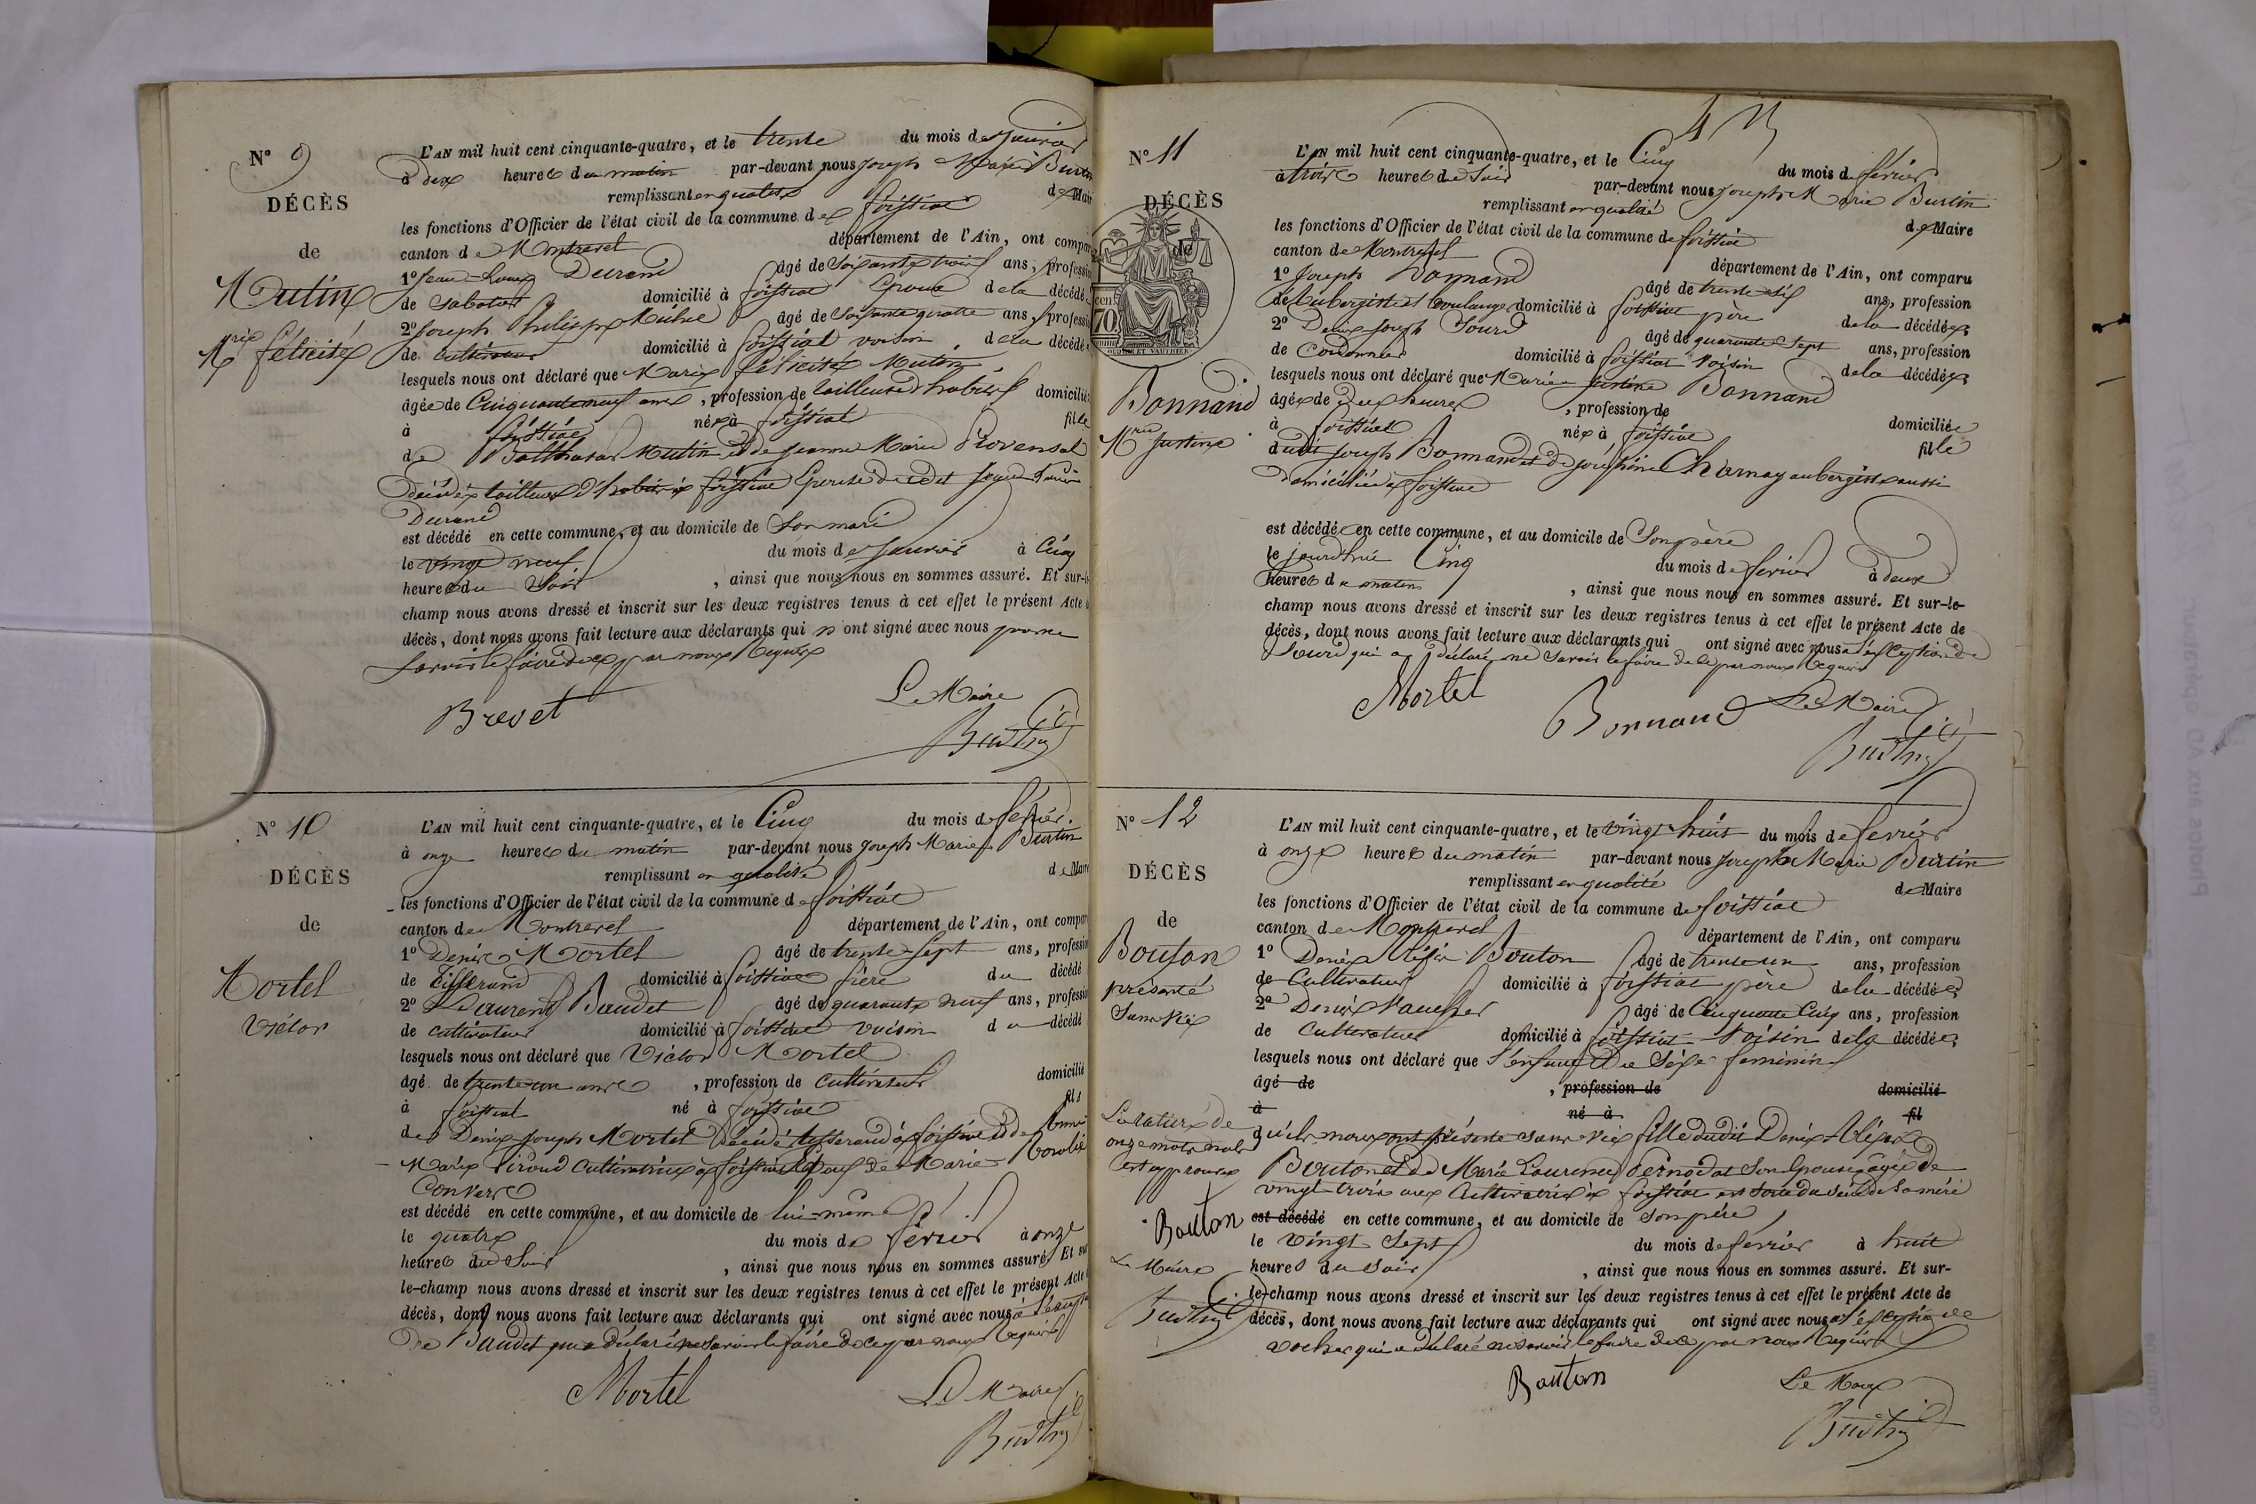 N° 9
DÉCÈS
de
Mutin
Mrie félicité
L'AN mil huit cent cinquante-quatre, et le trente du mois de Janvier
à deux heures du matin par-devant nous Joseph Marie Burtin
remplissant en qualité de Mair
les fonctions d'Officier de l'état civil de la commune de foissiat
canton de Montrevel département de l'Ain, ont compar
1° Jean-Louis Durand âgé de Soixante trois ans, professi
de Sabotier domicilié à foissiat Epoux de la décédé
2° Joseph Philippe âgé de Soixante quatre ans, professi
de cultivateur domicilié à foissiat voisin de la décédé
lesquels nous ont déclaré que Marie félicité Mutin
âgée de Cinquante neuf ans, profession de tailleuse d'habits domicilié
à foissiat née à foissiat fille
de Balthazar Mutin et de Jeanne Marie Provensal
décédés tailleur d'habits à foissiat Epouse de
Durand
est décédé en cette commune, et au domicile de Son mari
le vingt neuf du mois de Janvier à Cinq
heures du Soir, ainsi que nous nous en sommes assuré. Et sur-le-
champ nous avons dressé et inscrit sur les deux registres tenus à cet effet le présent Acte
décès, dont nous avons fait lecture aux déclarants qui n'ont signé avec nous pour ne
Savoir le faire de ce par nous Requis
Brevet
Le Maire
Burtin
N° 10
DÉCÈS
de
Mortel
Victor
L'AN mil huit cent cinquante-quatre, et le Cinq du mois de février.
à onze heures du matin par-devant nous Joseph Marie Burtin
remplissant en qualité de Maire
les fonctions d'Officier de l'état civil de la commune de foissiat
canton de Montrevel département de l'Ain, ont compar
1° Denis Mortel âgé de trente-Sept ans, professi
de Tisserand domicilié à foissiat frère du décédé
2° Laurent Baudet âgé de quarante neuf ans, professi
de cultivateur domicilié à foissiat voisin du décédé
lesquels nous ont déclaré que Victor Mortel
âgé de trente-un ans, profession de Cultivateur domicilié
à foissiat né à foissiat fils
de Denis Joseph Mortel décédé tisserand à foissiat et de
Marie Piroud Cultivatrice à foissiat Epoux de Marie Rosalie
Convert
est décédé en cette commune, et au domicile de lui-même
le quatre du mois de février à onze
heures du Soir, ainsi que nous nous en sommes assuré. Et sur
le-champ nous avons dressé et inscrit sur les deux registres tenus à cet effet le présent Acte
décès, dont nous avons fait lecture aux déclarants qui ont signé avec nous à l'exception
de Baudet qui a déclaré ne savoir le faire de ce par nous Requis
Mortel
Le Maire
Burtin
43
N° 11
DÉCÈS
de
cent
70
Bonnand
Mrie Justine
L'AN mil huit cent cinquante-quatre, et le Cinq du mois de février
à trois heures du Soir par-devant nous Joseph Marie Burtin
remplissant en qualité de Maire
les fonctions d'Officier de l'état civil de la commune de foissiat
canton de Montrevel département de l'Ain, ont comparu
1° Joseph Bonnand âgé de trente-six ans, profession
de Aubergiste et boulanger domicilié à foissiat père de la décédée
2° Denis Joseph Sourd âgé de quarante Sept ans, profession
de Cordonnier domicilié à foissiat Voisin de la décédée
lesquels nous ont déclaré que Marie-Justine Bonnand
âgée de deux heures, profession de domiciliée
à foissiat née à foissiat fille
dudit Joseph Bonnand et de Joséphine Charnay aubergiste aussi
domiciliée à foissiat
est décédée en cette commune, et au domicile de Son père
le jourd'hui Cinq du mois de février à deux
heures du matin, ainsi que nous nous en sommes assuré. Et sur-le-
champ nous avons dressé et inscrit sur les deux registres tenus à cet effet le présent Acte de
décès, dont nous avons fait lecture aux déclarants qui ont signé avec nous à l'exception de
Sourd qui a déclaré ne savoir le faire de ce par nous Requis
Mortel
Bonnand
Le Maire
Burtin
N° 12
DÉCÈS
de
Bouton
présenté
Sans Vie
La rature de
onze mots nuls
est approuvée
Bouton
Le Maire
Burtin
L'AN mil huit cent cinquante-quatre, et le vingt huit du mois de fevrier
à onze heures du matin par-devant nous Joseph Marie Burtin
remplissant en qualité de Maire
les fonctions d'Officier de l'état civil de la commune de foissiat
canton de Montrevel département de l'Ain, ont comparu
1° Denis Bouton âgé de trente un ans, profession
de Cultivateur domicilié à foissiat père de la décédée
2° Denis Vaucher âgé de Cinquante Cinq ans, profession
de Cultivateur domicilié à foissiat Voisin de la décédée
lesquels nous ont déclaré que l'enfant du Sexe feminin
âgé de , profession de domicilié
à né à fil
qu'ils nous ont présenté sans vie fille dudit Denis
Bouton et de Marie Laurence Pernodat Son Epouse âgée de
vingt-trois ans Cultivatrice à foissiat est sortie du sein de sa mère
est décédé en cette commune, et au domicile de Son père
le Vingt Sept du mois de fevrier à huit
heures du Soir, ainsi que nous nous en sommes assuré. Et sur-
le-champ nous avons dressé et inscrit sur les deux registres tenus à cet effet le présent Acte de
décès, dont nous avons fait lecture aux déclarants qui ont signé avec nous à l'exception de
Vocher qui a déclaré ne savoir le faire de ce par nous Requis
Bouton
Le Maire
Burtin